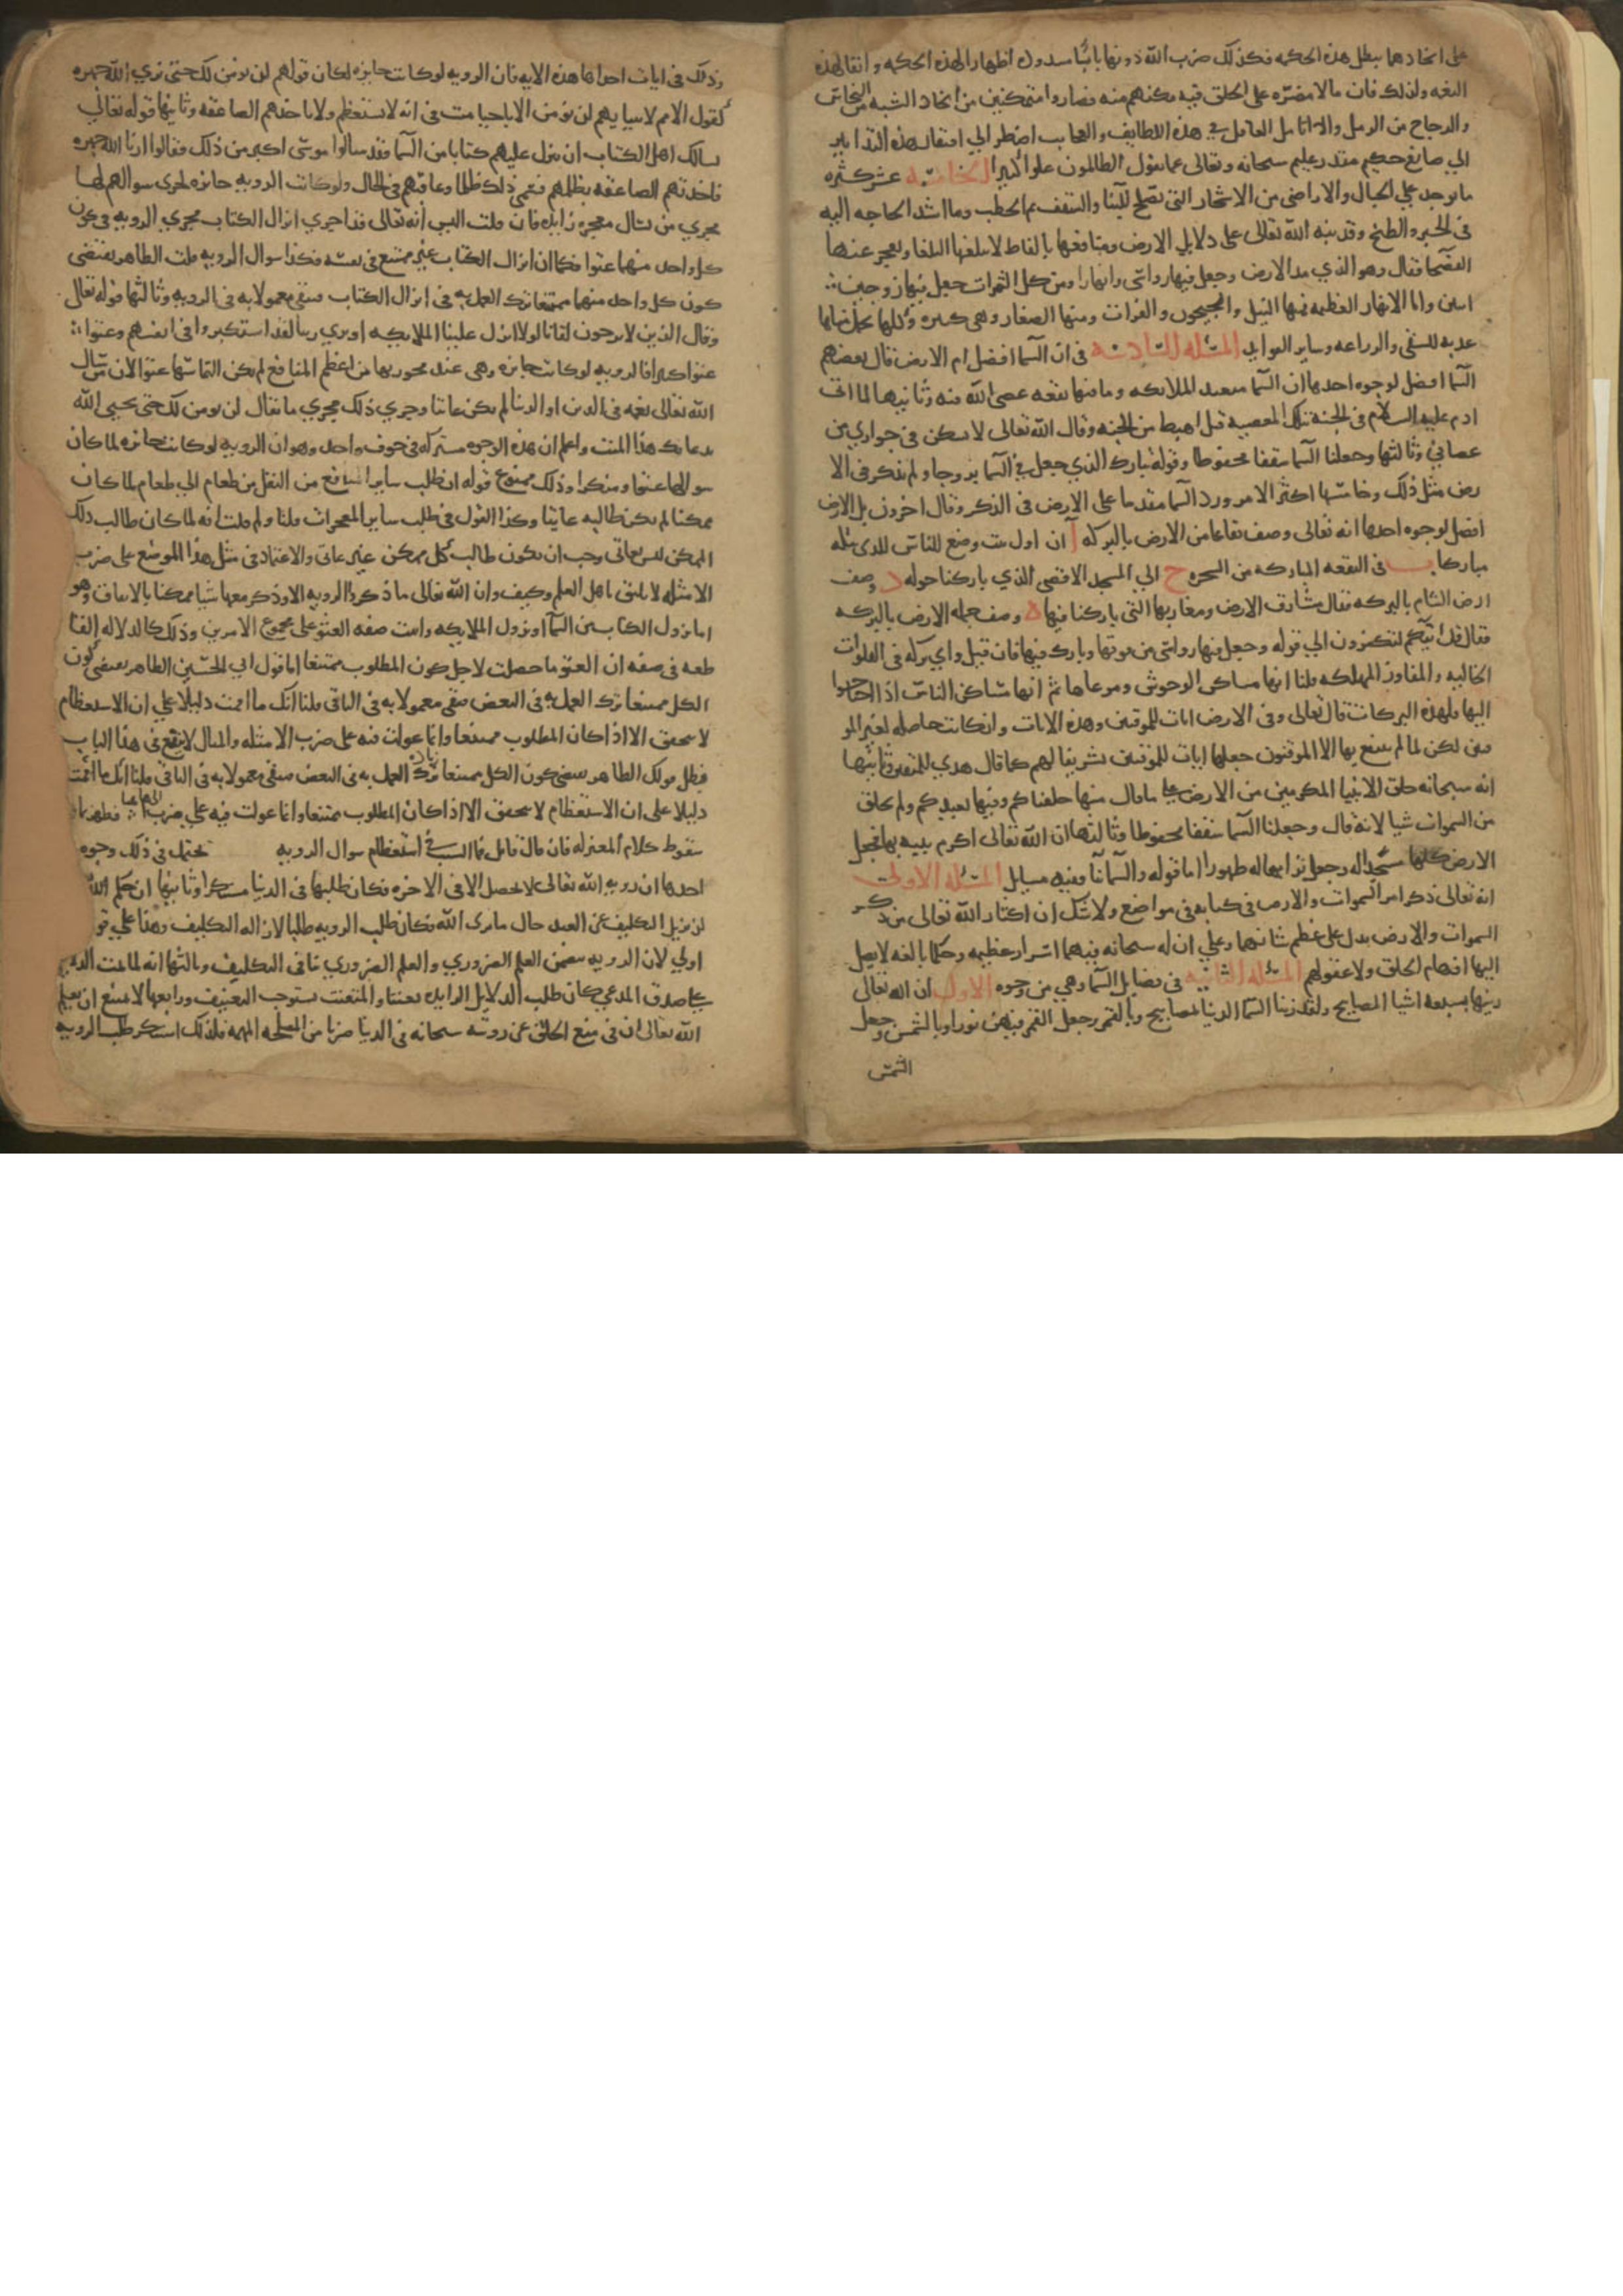 على اتخادهما ببطل هذه الحكمه فكذلك ضرب الله دونها بابا مسدودا اظهارا لهذه الحكمه وابقا لهذه
النعمه ولذلك فان ما لا مضره على الخلق فيه مكنهم منه فصاروا متمكنين من اتخاد الشبه من النحاس
والزجاج من الرمل واذا تامل العاقل في هذه اللطايف والعجايب اضطر الي افتقار هذه التدابير
الي صانع حكيم مقتدر عليم سبحانه وتعالى عما يقول الظالمون علوا كبيرا الخامسه عشر كثره
ما يوجد علي الجبال والاراضي من الاشجار التي تصلح للبنا والسقف ثم الحطب وما اشد الحاجه اليه
في الخبز والطبخ وقد نبه الله تعالى على دلايل الارض ومنافعها بالفاظ لا يبلغها البلغا ويعجز عنها
الفصحا فقال وهو الذي مد الارض وجعل فيها رواسي وانهارا ومن كل الثمرات جعل فيها زوجين
اثنين واما الانهار العظيمه فمنها النيل والجيحون والفرات ومنها الصغار وهي كثيره وكلها تحمل مياها
عذبه للسقي والزراعه وساير الفوايد المسئله السادسه في ان السما افضل ام الارض قال بعضهم
السما افضل لوجوه احدها ان السما متعبد الملايكه وما فيها بقعه عصي الله فيه وثانيها لما اتى
ادم عليه السلام في الجنة بتلك المعصيه قيل اهبط من الجنه وقال الله تعالى لا يسكن في جواري من
عصاني وثالثها وجعلنا السما سقفا محفوظا وقوله تبارك الذي جعل في السما بروجا ولم يذكر في الا
رض مثل ذلك وخامسها اكثر الامر ورد السما مقدما على الارض في الذكر وقال اخرون بل الارض
افضل لوجوه احدها انه تعالى وصف بقاعا من الارض بالبركه آ ان اول بيت وضع للناس للذي ببكه
مباركا ب في البقعه المباركه من الشجره ج الي المسجد الاقصي الذي باركنا حوله د وصف
ارض الشام بالبركه فقال مشارق الارض ومغاربها التي باركنا فيها ه وصف جمله الارض بالبركه
فقال قل ائنكم لتكفرون الي قوله وجعل فيها رواسي من فوقها وبارك فيها فان قيل واي بركه في الفلوات
الخاليه والمفاوز المهلكه قلنا انها مساكن الوحوش ومرعاها ثم انها مساكن الناس اذا احتاجوا
اليها فلهذه البركات قال تعالى وفي الارض ايات للموقنين وهذه الايات وان كانت حاصله لغير المو
قنين لكن لما لم ينتفع بها الا الموقنون جعلها ايات للموقنين تشريفا لهم كما قال هدي للمتقين وثانيها
انه سبحانه خلق الانبيا المكرمين من الارض على ما قال منها خلقناكم وفيها نعيدكم ولم يخلق
من السموات شيا لانه قال وجعلنا السما سقفا محفوظا وثالثها ان الله تعالى اكرم نبيه بها فجعل
الارض كلها مسجدا له وجعل ترابها له طهورا اما قوله والسما بنا ففيه مسايل المسئله الاولى
انه تعالى ذكر امر السموات والارض في كتابه في مواضع ولا شك ان اكثار الله تعالى من ذكر
السموات والارض يدل على عظم شانهما وعلي ان له سبحانه فيهما اسرارا عظيمه وحكما بالغه لا يصل
اليها افهام الخلق ولا عقولهم المسئله الثانيه في فضايل السما وهي من وجوه الاول ان الله تعالى
زينها بسبعه اشيا المصابيح ولقد زينا السما الدنيا بمصابيح وبالقمر وجعل القمر فيهن نورا وبالشمس وجعل
الشمس
وذلك في ايات احداها هذه الايه فان الرويه لو كانت جايزه لكان قولهم لن نومن لك حتى نري الله جهره
كقول الامم لانبيايهم لن نومن الا باحيا ميت في انه لا يستعظم ولا ياخذهم الصاعقه وثانيها قوله تعالى
يسالك اهل الكتاب ان تنزل عليهم كتابا من السما فقد سالوا موسى اكبر من ذلك فقالوا ارنا الله جهره
فاخذتهم الصاعقه بظلمهم فسمي ذلك ظلما وعاقبهم في الحال ولو كانت الرويه جايزه لجري سوالهم لها
مجري من يسال معجزه زايده فان قلت اليس انه تعالى قد اجري انزال الكتاب مجري الرويه في كون
كل واحد منهما عتوا فكما ان انزال الكتاب غير ممتنع في نفسه فكذا سوال الرويه قلت الظاهر يقتضي
كون كل واحد منهما ممتنعا ترك العمل به في انزال الكتاب فبقي معمولا به في الرويه وثالثها قوله تعالى
وقال الذين لا يرجون لقانا لولا انزل علينا الملايكه او نري ربنا لقد استكبروا في انفسهم وعتوا
عتوا كبيرا فالرويه لو كانت جايزه وهي عند مجوزيها من اعظم المنافع لم يكن التماسها عتوا لان من سال
الله تعالى نعمه في الدين او الدنيا لم يكن عاتيا وجري ذلك مجري ما يقال لن نومن لك حتى يحيي الله
بدعايك هذا الميت واعلم ان هذه الوجوه مشتركه في حرف واحد وهو ان الرويه لو كانت جايزه لما كان
سوالها عتوا ومنكرا وذلك ممنوع قوله ان طلب ساير المنافع من النقل من طعام الي طعام لما كان
ممكنا لم يكن طالبه عاتيا وكذا القول في طلب ساير المعجزات قلنا ولم قلت انه لما كان طالب ذلك
الممكن ليس بعاتي وجب ان يكون طالب كل ممكن غير عاتي والاعتماد في مثل هذا الموضع على ضرب
الامثله لا يليق باهل العلم وكيف وان الله تعالى ما ذكر الرويه الا وذكر معها شيا ممكنا بالاتفاق وهو
اما نزول الكتاب من السما او نزول الملايكه واثبت صفه العتو على مجموع الامرين وذلك كالدلاله القا
طعه في صفه ان العتو ما حصلت لاجل كون المطلوب ممتنعا اما قول ابي الحسين الظاهر يقتضي كون
الكل ممتنعا ترك العمل به في البعض فبقي معمولا به في الباقي قلنا انك ما اقمت دليلا علي ان الاستعظام
لا يتحقق الا اذا كان المطلوب ممتنعا وانما عولت فيه على ضرب الامثله والمثال لا ينفع في هذا الباب
فبطل قولك الظاهر يقتضي كون الكل ممتنعا ترك العمل به في البعض فبقي معمولا به في الباقي قلنا انك ما اقمت
دليلا على ان الاستعظام لا يتحقق الا اذا كان المطلوب ممتنعا وانما عولت فيه علي ضرب فظهر بما
سقوط كلام المعتزله فان قال قايل فما السبب في استعظام سوال الرويه يحتمل في ذلك وجوه
احدها ان رويه الله تعالى لا تحصل الا في الاخره فكان طلبها في الدنيا مستنكرا وثانيها ان حكم الله
ان يزيل التكليف عن العبد حال ما يرى الله فكان طلب الرويه طلبا لازاله التكليف وهذا علي قو
اولي لان الرويه تتضمن العلم الضروري والعلم الضروري ينافي التكليف وثالثها انه لما تمت الدلايل
على صدق المدعي كان طلب الدلايل الزايده تعنتا والمتعنت يستوجب التعنيف ورابعها لا يمتنع ان يعلم
الله تعالى ان في منع الخلق عن رويته سبحانه في الدنيا ضربا من المصلحه المهمه فلذلك استنكر طلب الرويه